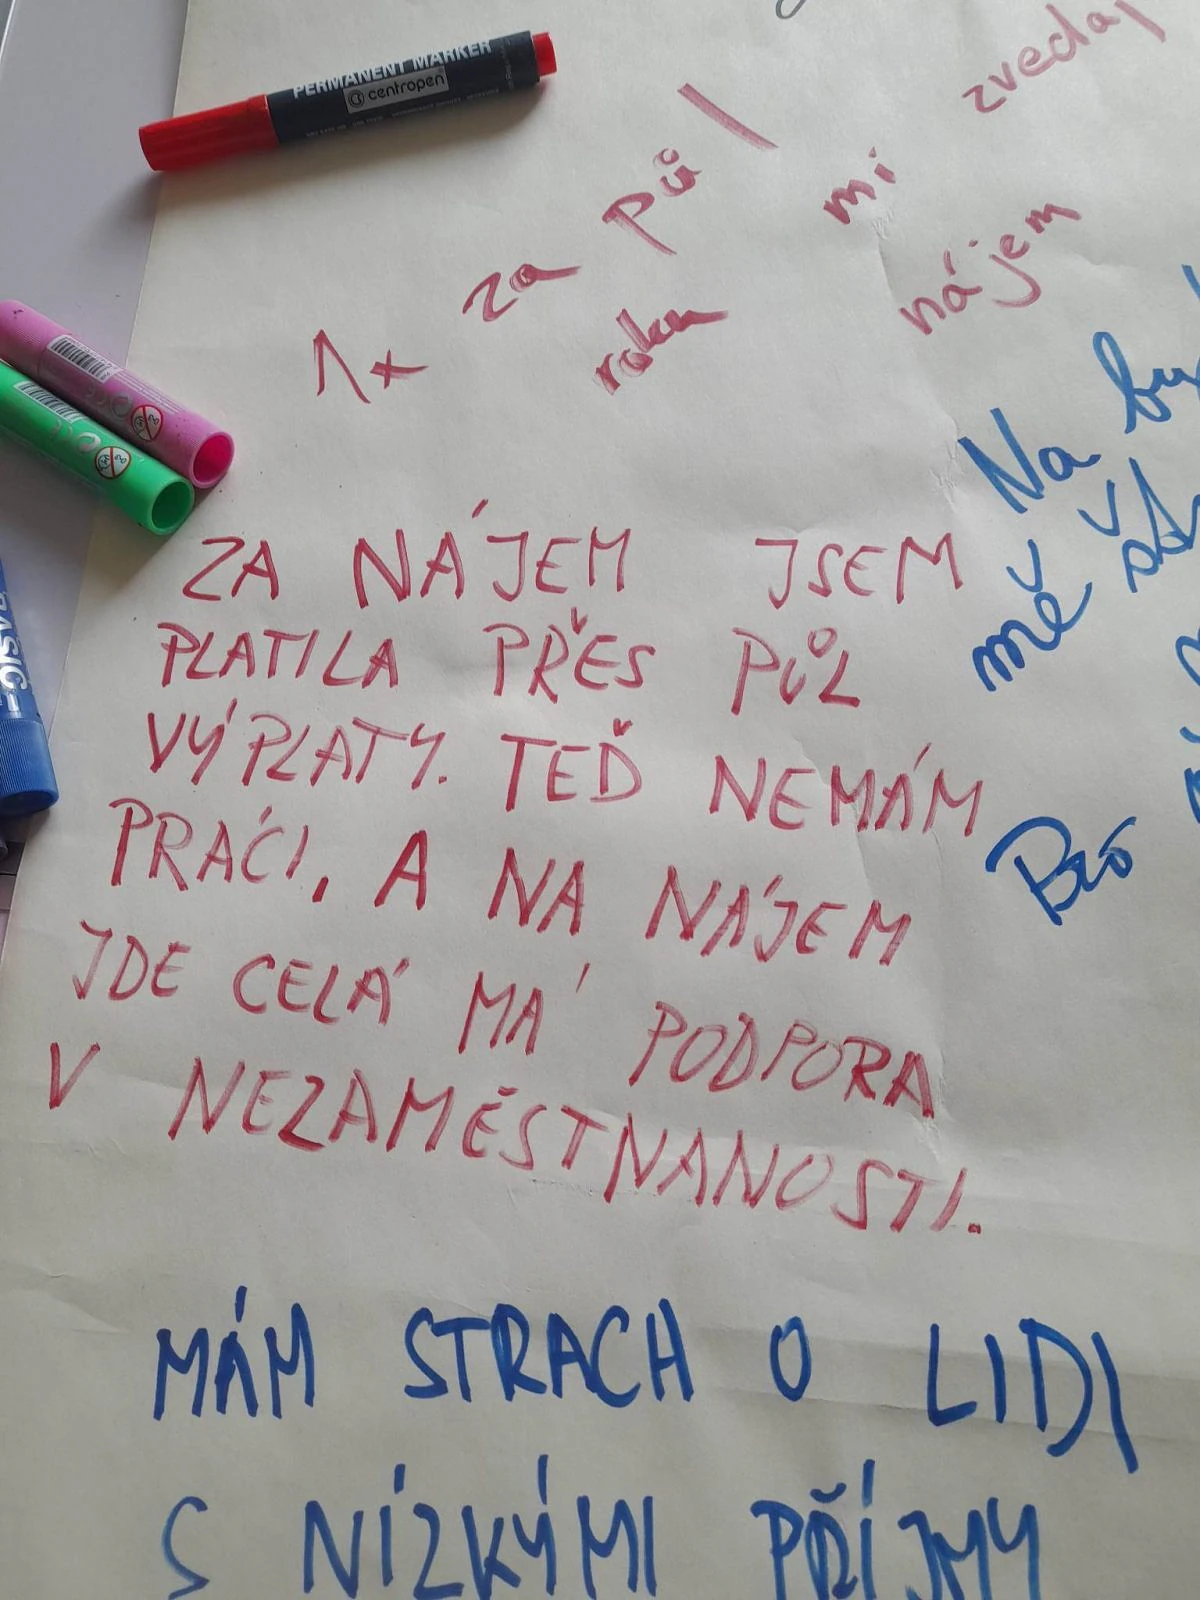 PERMANENT MARKER
centropen
1x za půl roku mi zvedaj nájem
ZA NÁJEM JSEM
PLATILA PŘES PŮL
VÝPLATY. TEĎ NEMÁM
PRÁCI, A NA NÁJEM
JDE CELÁ MÁ PODPORA
V NEZAMĚSTNANOSTI.
MÁM STRACH O LIDI
S NÍZKÝMI PŘÍJMY
Na
mě
BASIC